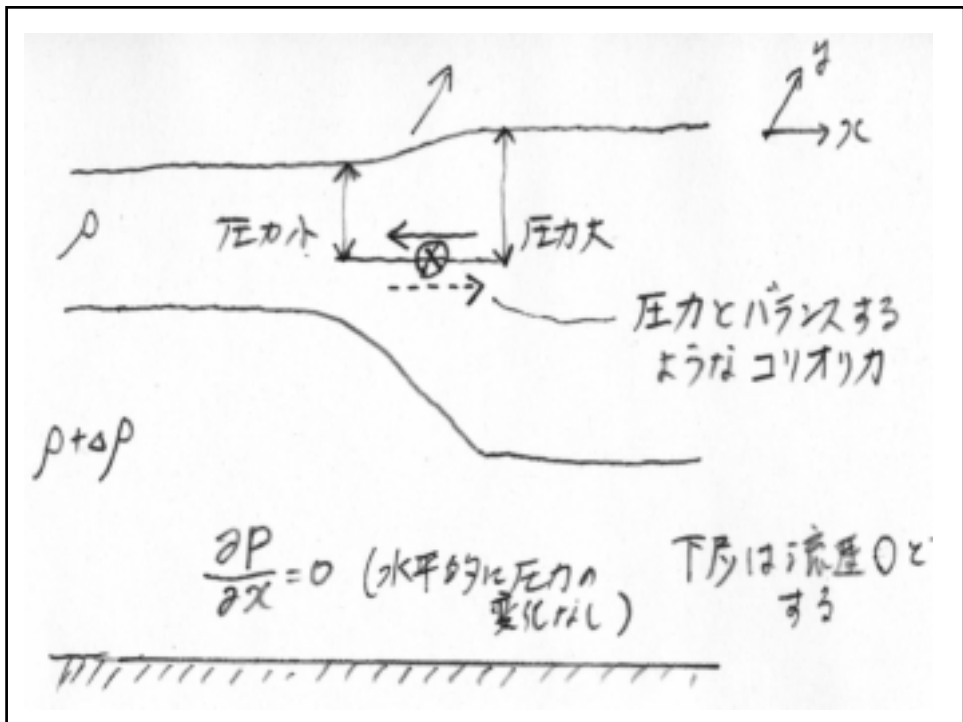 y
x
ρ
圧力小
圧力大
圧力とバランスする
ようなコリオリカ
ρ+Δρ
∂P/∂x=0 (水平的に圧力の
変化なし)
下層は流速0と
する